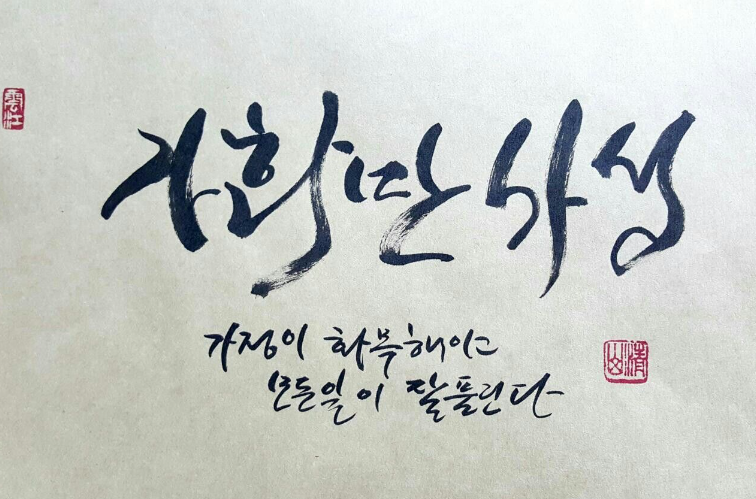 雲江
가화만사성
가정이 화목해야고
모든일이 잘풀린다
清山